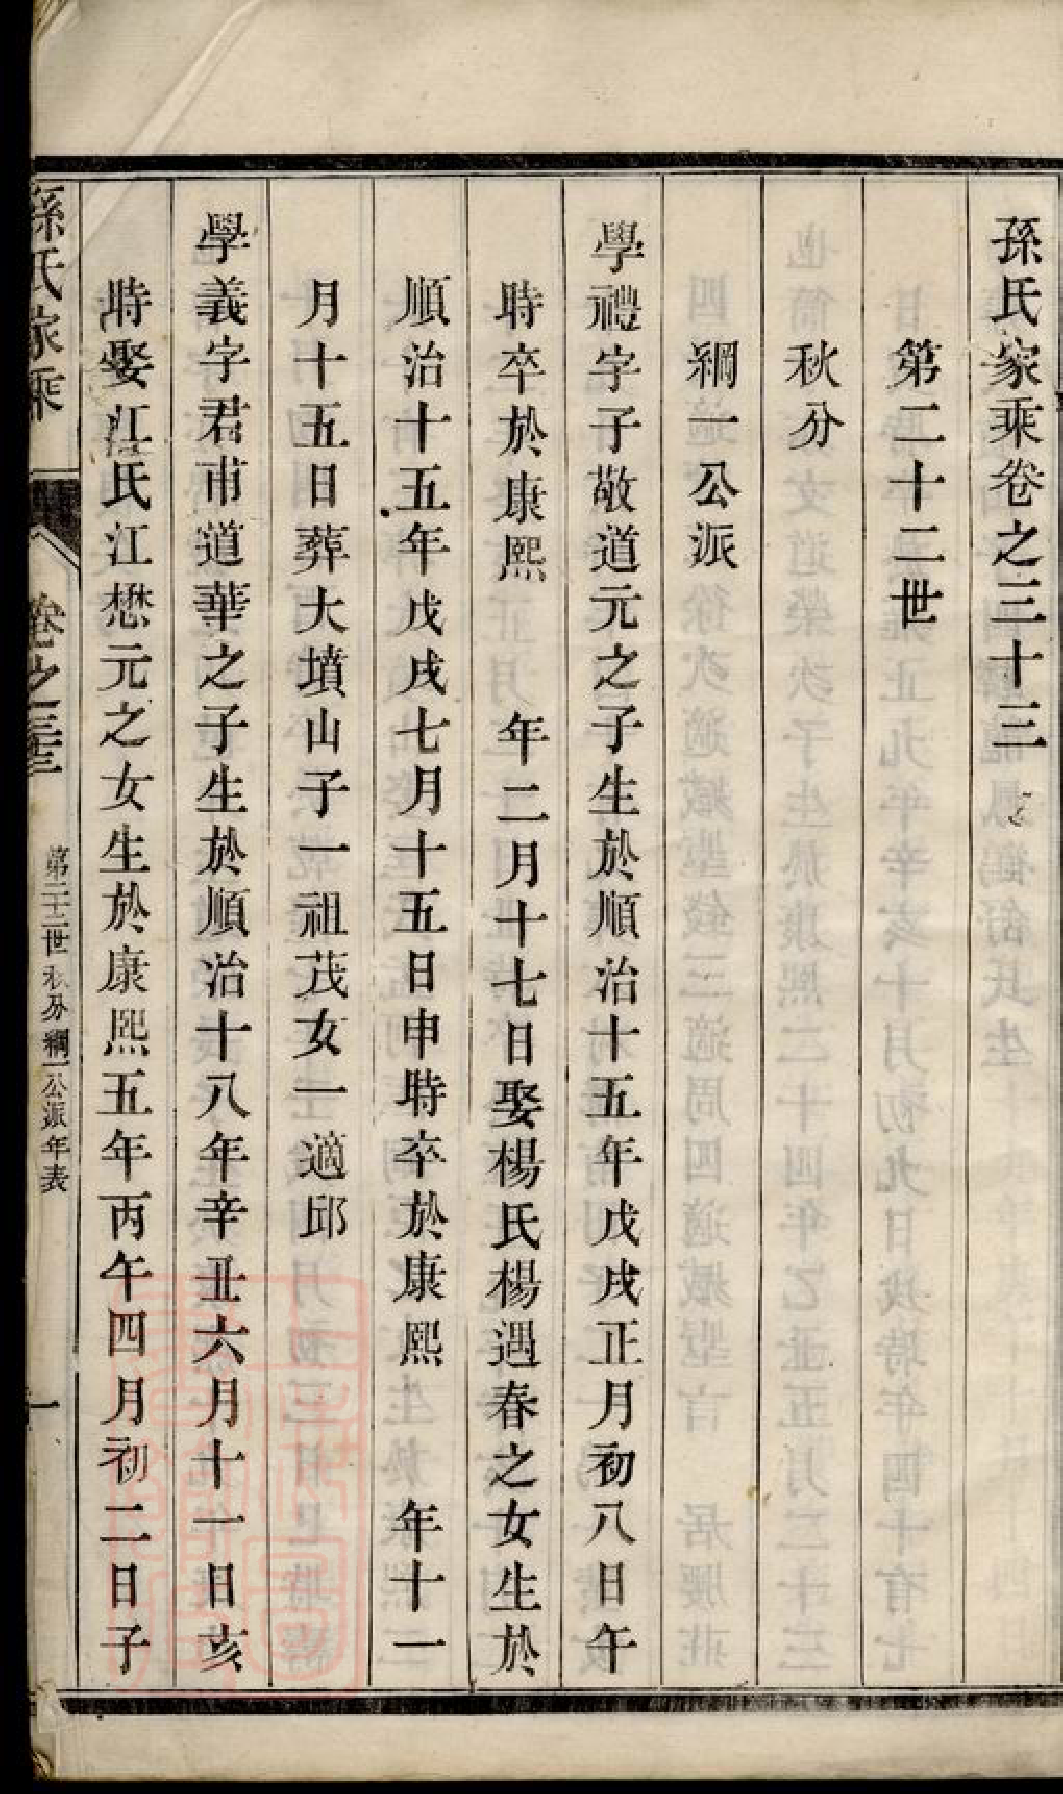 孫氏家乘卷之三十三
第二十二世
秋分
綱一公派
學禮字子敬道元之子生於順治十五年戊戌正月初八日午
時卒於康熙　　年二月十七日娶楊氏楊遇春之女生於
順治十五年戊戌七月十五日申時卒於康熙　　年十一
月十五日葬大墳山子一祖茂女一適邱
學義字君甫道華之子生於順治十八年辛丑六月十一日亥
時娶江氏江懋元之女生於康熙五年丙午四月初二日子
孫氏家乘
卷之三十三
第二十二世秋分綱一公派年表
一